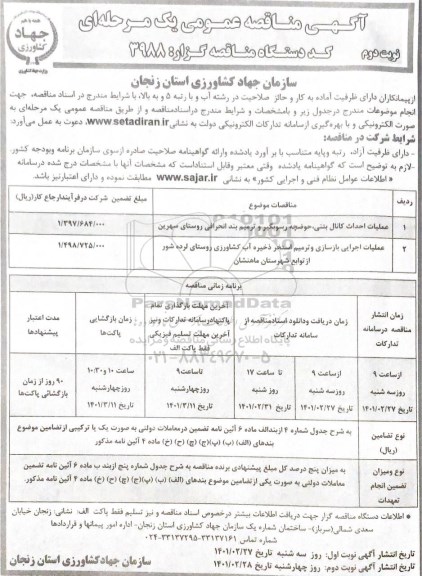 آگهی مناقصه عمومی یک مرحله‌ای
کد دستگاه مناقصه گزار: ۳۹۸۸
نوبت دوم
جهاد
کشاورزی
سازمان جهاد کشاورزی استان زنجان
ازپیمانکاران دارای ظرفیت آماده به کار و حائز صلاحیت در رشته آب و با رتبه ۵ و به بالا، با شرایط مندرج در اسناد مناقصه، جهت
انجام موضوعات مندرج درجدول زیر و بامشخصات و شرایط مندرج دراسنادمناقصه و از طریق مناقصه عمومی یک مرحله‌ای به
صورت الکترونیکی و با بهره‌گیری ازسامانه تدارکات الکترونیکی دولت به نشانی www.setadiran.ir، دعوت به عمل می‌آورد:
شرایط شرکت در مناقصه:
- دارای ظرفیت آزاد، رتبه وپایه متناسب با بر آورد یادشده وارائه گواهینامه صلاحیت صادره ازسوی سازمان برنامه وبودجه کشور.
-لازم به توضیح است که گواهینامه یادشده وقتی معتبر وقابل استناداست که مشخصات آنها با مشخصات درج شده درسامانه
« اطلاعات عوامل نظام فنی و اجرایی کشور» به نشانی www.sajar.ir مطابقت نموده و دارای اعتبارنیز باشد.
ردیف
مناقصات موضوع
مبلغ تضمین شرکت درفرآیندارجاع کار(ریال)
۱
عملیات احداث کانال بتنی،حوضچه رسوبگیر و ترمیم بند انحرافی روستای سهرین
۱/۳۹۷/۶۸۴/۰۰۰
۲
عملیات اجرایی بازسازی و ترمیم استخر ذخیره آب کشاورزی روستای لرده شور
ازتوابع شهرستان ماهنشان
۱/۴۹۸/۷۲۵/۰۰۰
برنامه زمانی مناقصه
زمان انتشار
مناقصه درسامانه
تدارکات
زمان دریافت ودانلود اسنادمناقصه از
سامانه تدارکات
آخرین مهلت بارگذاری تمام
پاکتهادرسامانه تدارکات ونیز
آخرین مهلت تسلیم فیزیکی
فقط پاکت الف
زمان بازگشایی
پاکت‌ها
مدت اعتبار
پیشنهادها
ازساعت ۹
روزسه شنبه
تاریخ ۱۴۰۱/۰۲/۲۷
ازساعت ۹
روزسه شنبه
تاریخ ۱۴۰۱/۰۲/۲۷
تا ساعت ۱۷
روز شنبه
تاریخ ۱۴۰۱/۰۲/۳۱
تاساعت۹
روزچهارشنبه
تاریخ ۱۴۰۱/۳/۱۱
ساعت ۱۰و۱۰:۳۰
روزچهارشنبه
تاریخ ۱۴۰۱/۳/۱۱
۹۰ روز از زمان
بازگشائی پاکت‌ها
نوع تضامین
(ریال)
به شرح جدول شماره ۴ ازبندالف ماده ۶ آئین نامه تضمین درمعاملات دولتی به صورت یک یا ترکیبی ازتضامین موضوع
بندهای (الف) (ب) (پ)(ج) (چ) (ح) (خ) ماده ۴ آئین نامه مذکور.
نوع ومیزان
تضمین انجام
تعهدات
به میزان پنج درصد کل مبلغ پیشنهادی برنده مناقصه به شرح جدول شماره پنج ازبند ب ماده ۶ آئین نامه تضمین
معاملات دولتی به صورت یکی ازتضامین موضوع بندهای (الف) (ب) (پ)(ج) (چ) (ح) (خ) ماده ۴ آئین نامه مذکور.
* اطلاعات دستگاه مناقصه گزار جهت دریافت اطلاعات بیشتر درخصوص اسناد مناقصه و نیز تسلیم فقط پاکت الف نشانی زنجان خیابان
سعدی شمالی(سرباز)- ساختمان شماره یک سازمان جهاد کشاورزی استان زنجان- اداره امور پیمانها و قراردادها
شماره تماس ۳۳۱۳۷۱۶۱-۰۲۴-۳۳۱۳۷۲۹۵
تاریخ انتشار آگهی نوبت اول: روز سه شنبه تاریخ ۱۴۰۱/۰۲/۲۷
تاریخ انتشار آگهی نوبت دوم: روز چهارشنبه تاریخ ۱۴۰۱/۰۲/۲۸
سازمان جهادکشاورزی استان زنجان
ParsNamadData
پایگاه اطلاع رسانی مناقصه و مزایده
۰۲۱-۸۸۳۴۹۶۷۰-۵